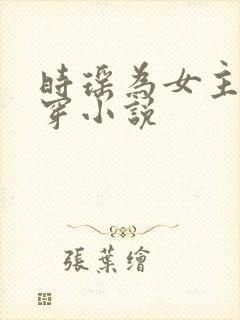 時瑶為女主
穿小說
張葉繪